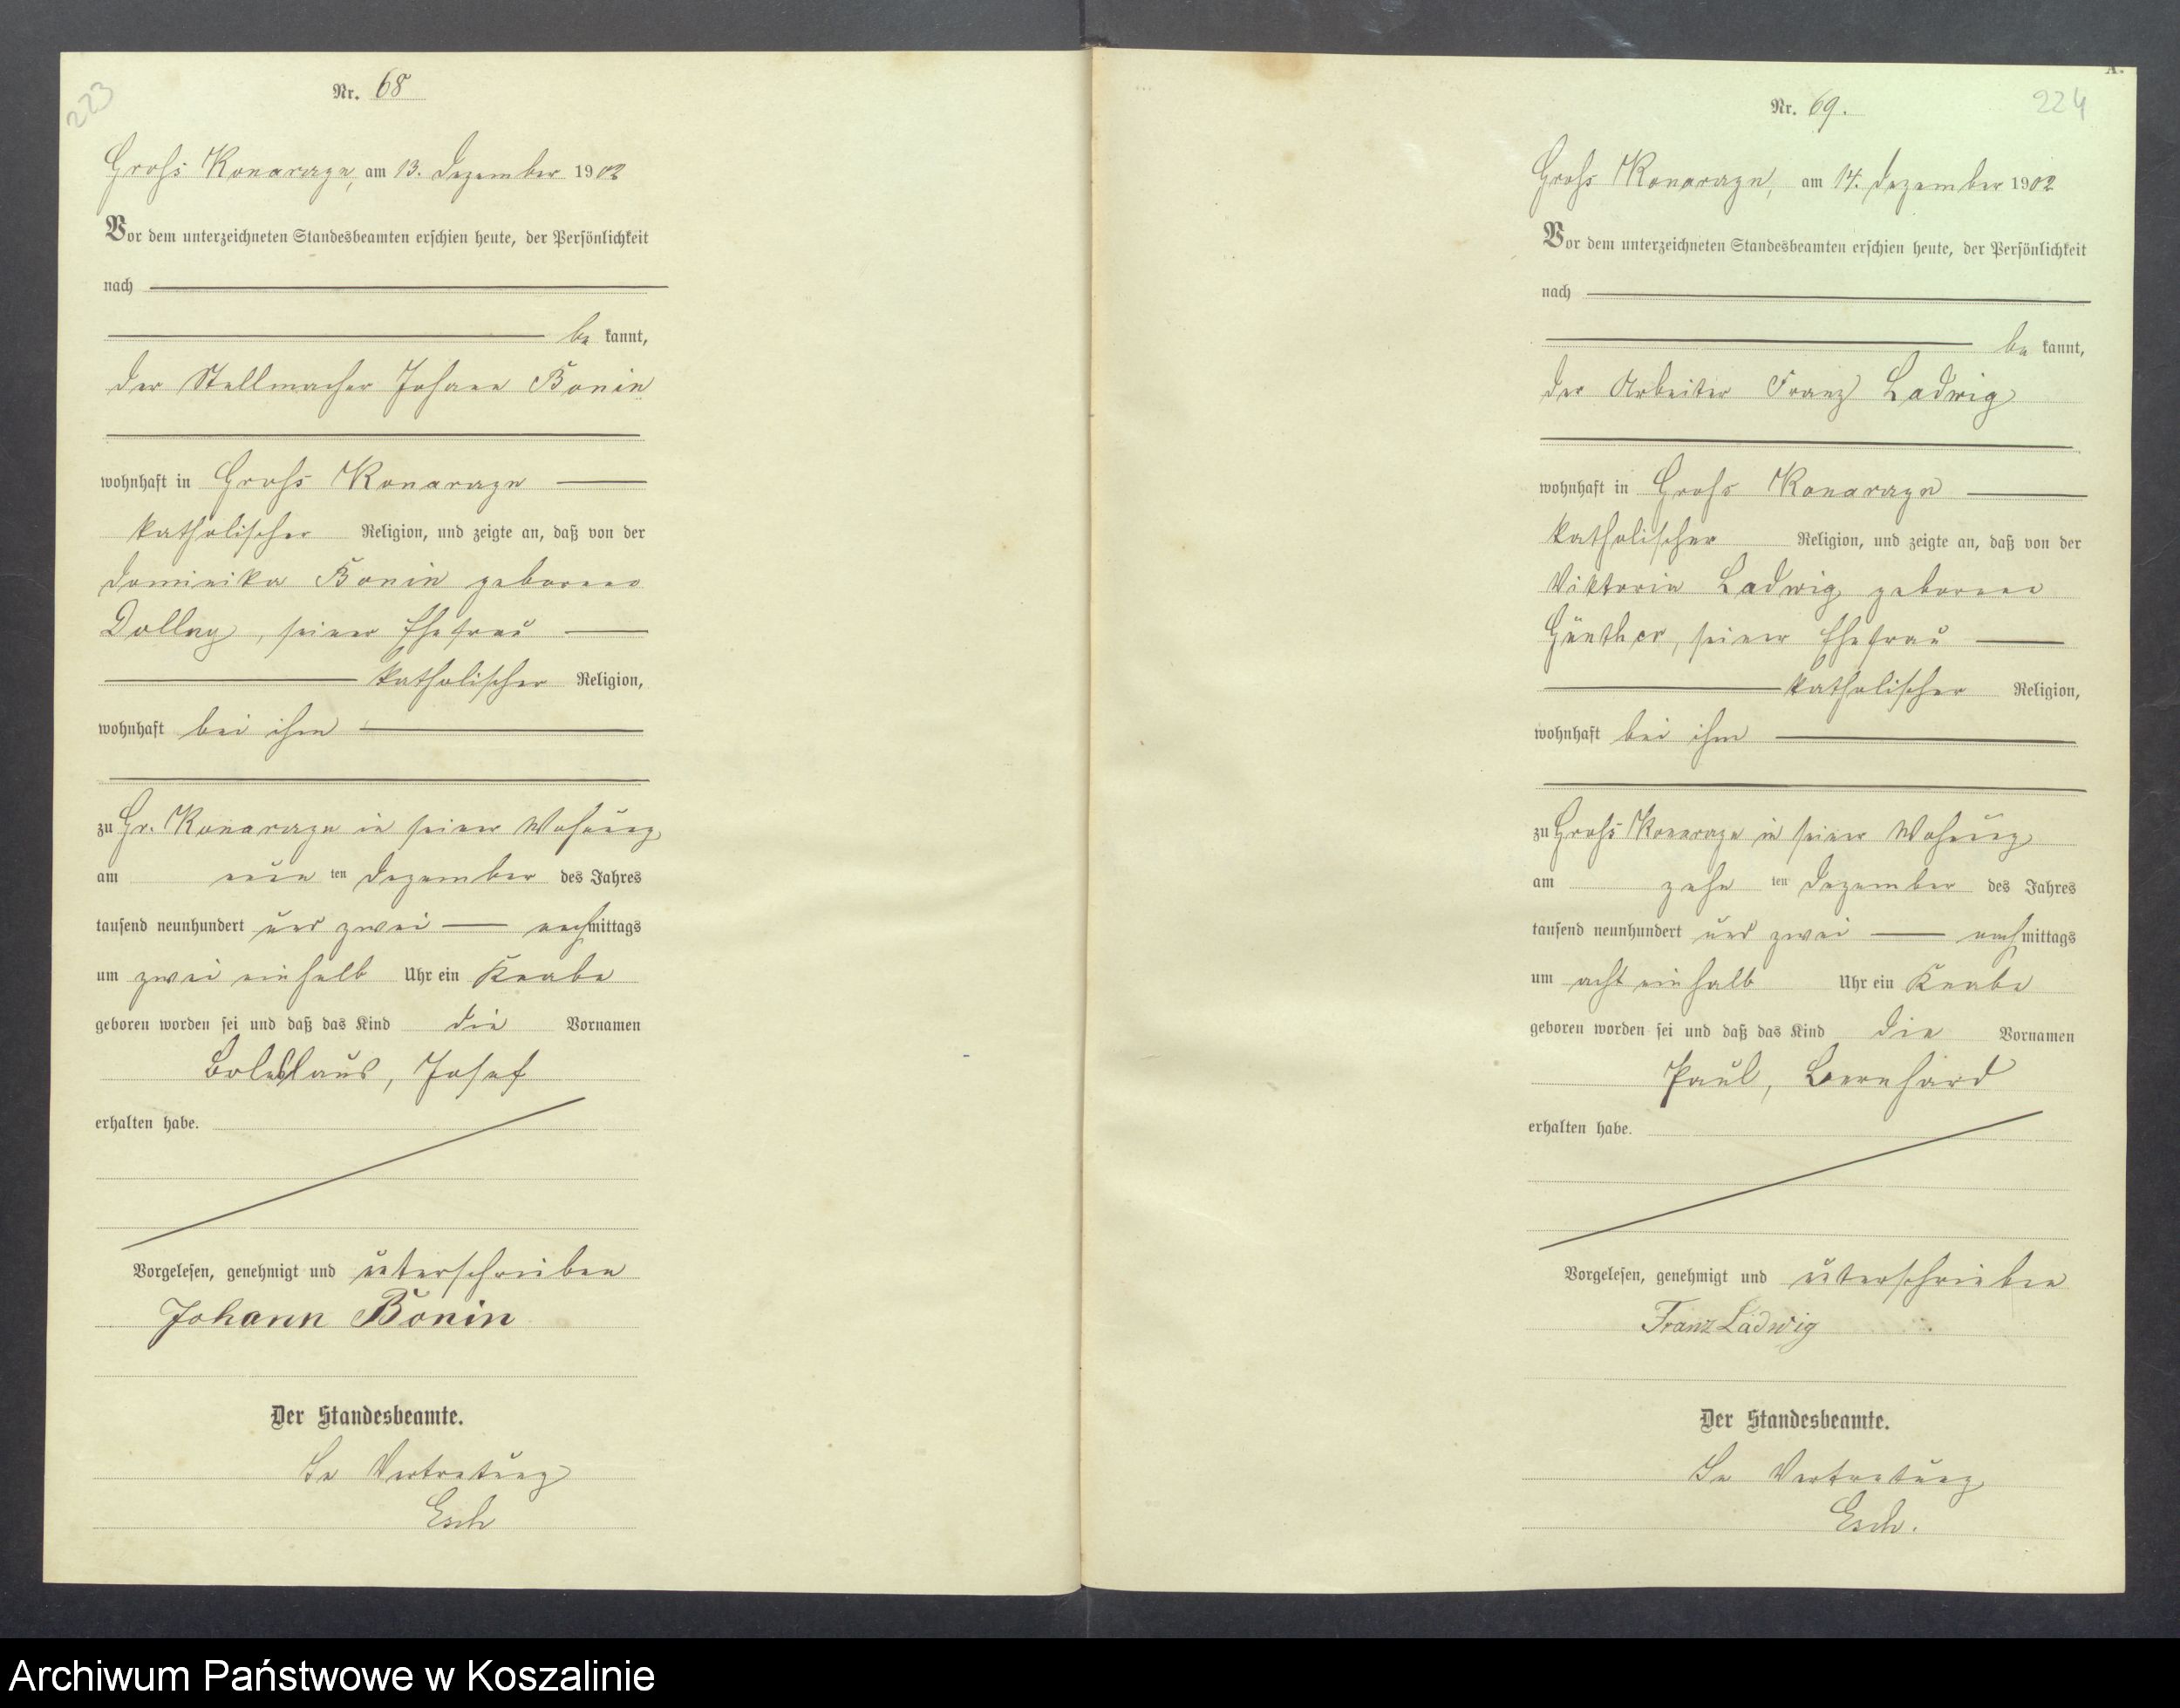 223
Nr. 68
Groß Konarczyn, am 13. Dezember 1902
Vor dem unterzeichneten Standesbeamten erschien heute, der Persönlichkeit
nach
be kannt,
der Stellmacher Johann Bonin
wohnhaft in Groß Konarczyn
katholischer Religion, und zeigte an, daß von der
Dominika Bonin geborene
seiner Ehefrau
katholischer Religion,
wohnhaft bei ihm
zu Gr. Konarczyn in seiner Wohnung
am neun ten Dezember des Jahres
tausend neunhundert und zwei nachmittags
um zwei einhalb Uhr ein Knabe
geboren worden sei und daß das Kind die Vornamen
Boleslaus, Josef
erhalten habe.
Vorgelesen, genehmigt und unterschrieben
Johann Bonin
Der Standesbeamte.
In Vertretung
Esch
A.
224
Nr. 69.
Groß Konarczyn, am 14. Dezember 1902
Vor dem unterzeichneten Standesbeamten erschien heute, der Persönlichkeit
nach
be kannt,
der Arbeiter Franz Ladwig
wohnhaft in Groß Konarczyn
katholischer Religion, und zeigte an, daß von der
Viktoria Ladwig geborene
Günther, seiner Ehefrau
katholischer Religion,
wohnhaft bei ihm
zu Groß Konarczyn in seiner Wohnung
am zehn ten Dezember des Jahres
tausend neunhundert und zwei nachmittags
um acht einhalb Uhr ein Knabe
geboren worden sei und daß das Kind die Vornamen
Paul, Bernhard
erhalten habe.
Vorgelesen, genehmigt und unterschrieben
Franz Ladwig
Der Standesbeamte.
In Vertretung
Esch.
Archiwum Państwowe w Koszalinie